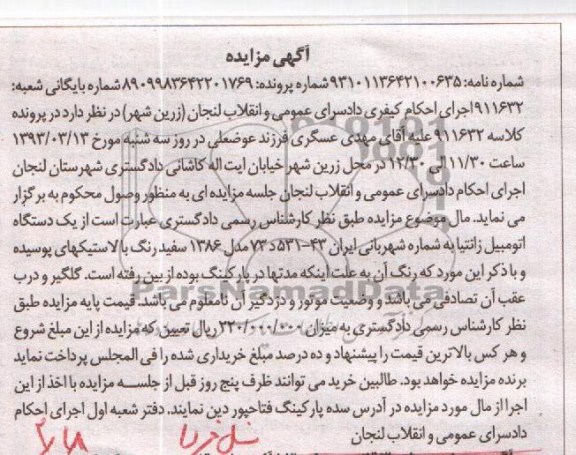 آگهی مزایده
شماره نامه: ۹۳۱۰۱۱۳۶۴۲۱۰۰۶۳۵ شماره پرونده: ۸۹۰۹۹۸۳۶۴۲۲۰۱۷۶۹ شماره بایگانی شعبه:
۹۱۱۶۳۲ اجرای احکام کیفری دادسرای عمومی و انقلاب لنجان (زرین شهر) در نظر دارد در پرونده
کلاسه ۹۱۱۶۳۲ علیه آقای مهدی عسگری فرزند عوضعلی در روز سه شنبه مورخ ۱۳۹۳/۰۳/۱۳
ساعت ۱۱/۳۰ الی ۱۲/۳۰ در محل زرین شهر خیابان ایت اله کاشانی دادگستری شهرستان لنجان
اجرای احکام دادسرای عمومی و انقلاب لنجان جلسه مزایده ای به منظور وصول محکوم به برگزار
می نماید. مال موضوع مزایده طبق نظر کارشناس رسمی دادگستری عبارت است از یک دستگاه
اتومبیل زانتیا به شماره شهربانی ایران ۴۳-۵۳۱د۷۳ مدل ۱۳۸۶ سفید رنگ با لاستیکهای پوسیده
و با ذکر این مورد که رنگ آن به علت اینکه مدتها در پارکینگ بوده از بین رفته است. گلگیر و درب
عقب آن تصادفی می باشد و وضعیت موتور و دزدگیر آن نامعلوم می باشد. قیمت پایه مزایده طبق
نظر کارشناس رسمی دادگستری به میزان ۲۲۰/۰۰۰/۰۰۰ ریال تعیین که مزایده از این مبلغ شروع
و هر کس بالاترین قیمت را پیشنهاد و ده درصد مبلغ خریداری شده را فی المجلس پرداخت نماید
برنده مزایده خواهد بود. طالبین خرید می توانند ظرف پنج روز قبل از جلسه مزایده با اخذ از این
اجرا از مال مورد مزایده در آدرس سده پارکینگ فتاحپور دین نمایند. دفتر شعبه اول اجرای احکام
دادسرای عمومی و انقلاب لنجان
نسل فردا
ParsNamadData